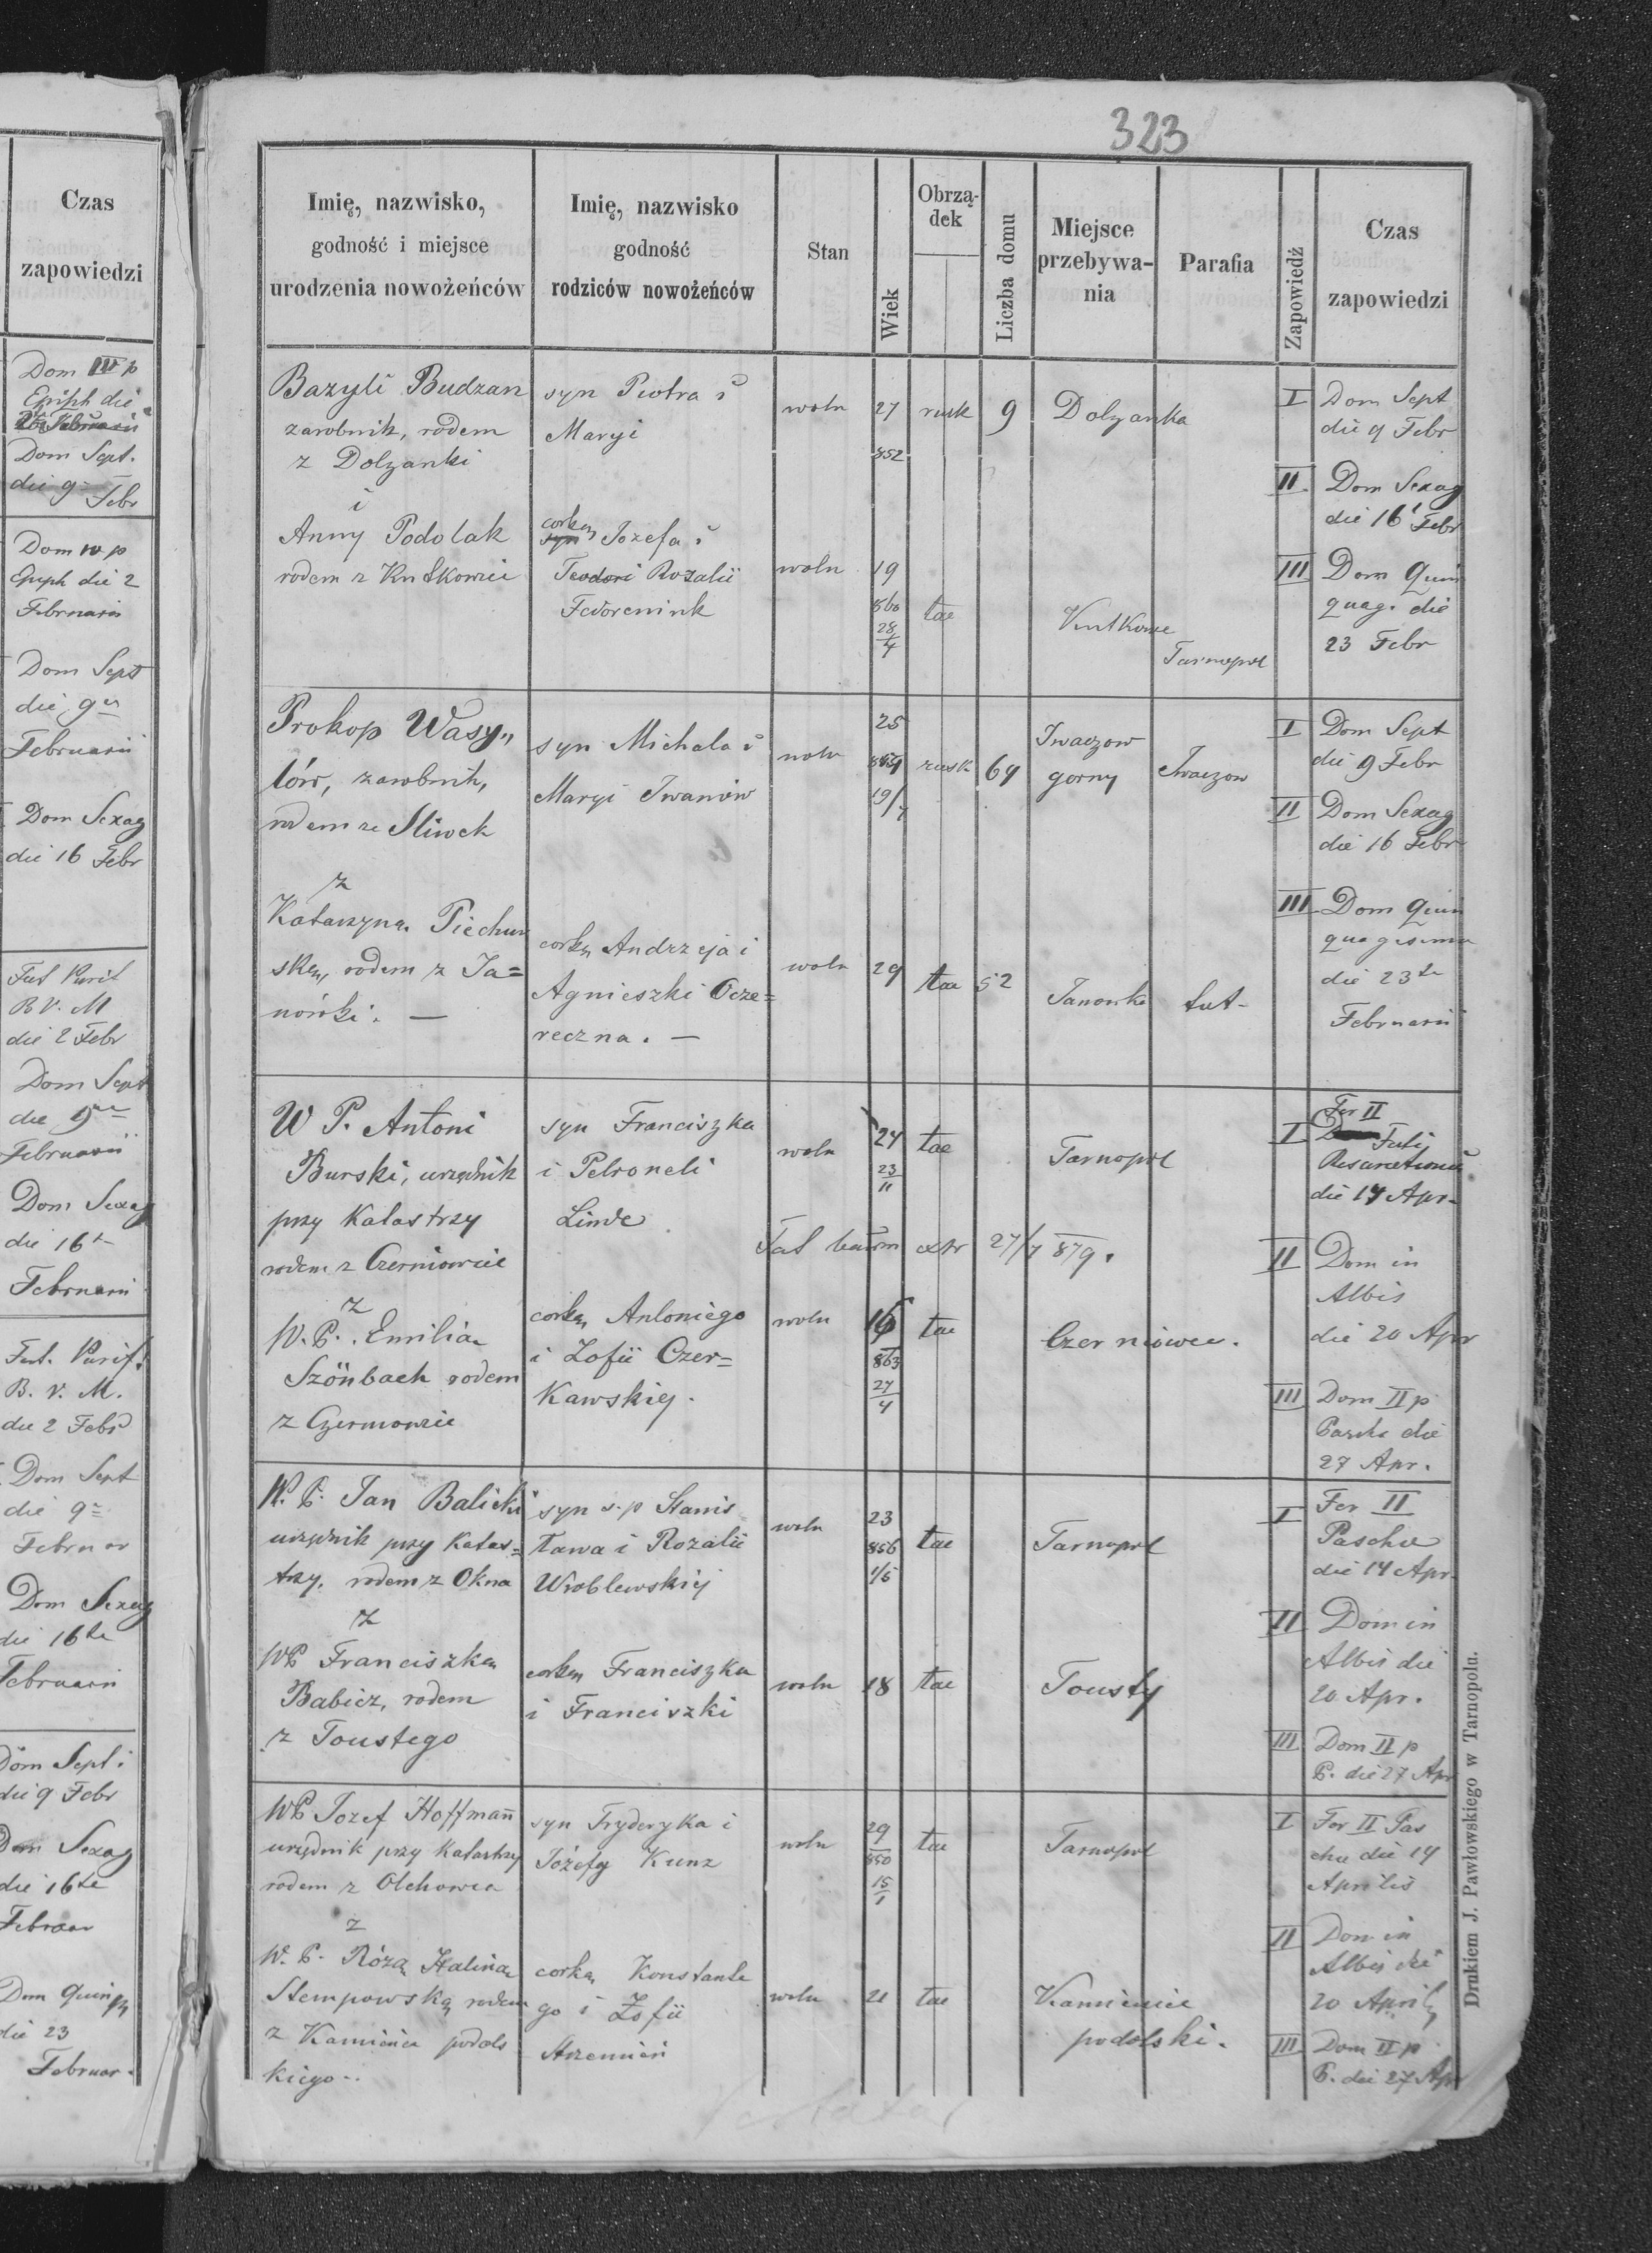 323
Czas
zapowiedzi
Dom III p
Epiph die
Dom Sept.
die 9 Febr
Dom IV p
Epiph die 2
Februarii
Dom Sept
die 9
Februarii
Dom Sexag
die 16 Febr
Fest Purif
B V. M
die 2 Febr
Dom Sept
die 9
Februarii
Dom Sexag
die 16
Februarii
Fest. Purif.
B. V. M.
die 2 Febr
Dom Sept
die 9
Februar
Dom Sexag
die 16
Februarii
Dom Sept.
die 9 Febr
Dom Sexag
die 16
Februar
Dom Quinqu
die 23
Februar.
Imię, nazwisko,
godność i miejsce
urodzenia nowożeńców
Imię, nazwisko
godność
rodziców nowożeńców
Stan
Wiek
Obrzą-
dek
Liczba domu
Miejsce
przebywa-
nia
Parafia
Zapowiedź
Czas
zapowiedzi
Bazyli Budzan
zarobnik, rodem
z Dolzanki
i
Anny Podolak
rodem z Kutkowic
syn Piotra i
Maryi
corką Jozefa i
Teodori Rozalii
Fedoreniuk
woln
27
852
rusk
9
Dolzanka
woln
19
860
28/4
tac
Kutkowce
Tarnopol
I Dom Sept
die 9 Febr
II Dom Sexag
die 16 Febr
III Dom Quin
quag. die
23 Febr
Prokop Wasy„
lów, zarobnik,
rodem ze Sliwek
z
Katarzyną Piechur
ską, rodem z Ja=
nówki. —
syn Michala i
Maryi Iwanów
corką Andrzeja i
Agnieszki Ocze=
reczna. —
woln
25
19/7
rusk
69
Iwaczow
gorny
Iwaczow
woln
29
tac
52
Janowka
tut-
I Dom Sept
die 9 Febr
II Dom Sexag
die 16 Febr
III Dom Quin
quagesima
die 23
Februarii
W P. Antoni
Burski, urzędnik
przy Katastrzy
rodem z Czerniowic
z
W. P. Emilią
Szönbach rodem
z Czerniowic
syn Franciszka
i Petroneli
Linde
corką Antoniego
i Zofii Czer=
Kawskiej.
woln
24
23/11
tac
Tarnopol
27/7 879.
woln
16
863
27/4
tac
Czerniowce.
I Fer II
Festi
Resurectionis
die 14 Apr.
II Dom in
Albis
die 20 Apr
III Dom II p
Pascha die
27 Apr.
W. P. Jan Balicki
urzędnik przy Katas=
trzy. rodem z Okna
z
WP Franciszką
Babicz, rodem
z Toustego
syn s. p Stanis
ława i Rozalii
Wroblewskiej
corką Franciszka
i Franciszki
woln
23
856
1/5
tac
Tarnopol
woln
18
tac
Tousty
I Fer II
Pascha
die 14 Apr.
II Dom in
Albis die
20 Apr.
III Dom II p
P. die 27 Apr
WP Jozef Hoffmann
urzędnik przy Katastrzy
rodem z Olchowca
z
W. P. Różą Haliną
Stempowską rodem
z Kamieńca podols
kiego..
syn Fryderyka i
Józefy Kunz
corką Konstante
go i Zofii
woln
29
850
15/1
tac
Tarnopol
woln
21
tac
Kamieniec
podolski.
I Fer II Pas
chae die 14
Aprilis
II Dom in
Albis die
20 Aprilis
III Dom II p
P. die 27 Apr
Drukiem J. Pawłowskiego w Tarnopolu.